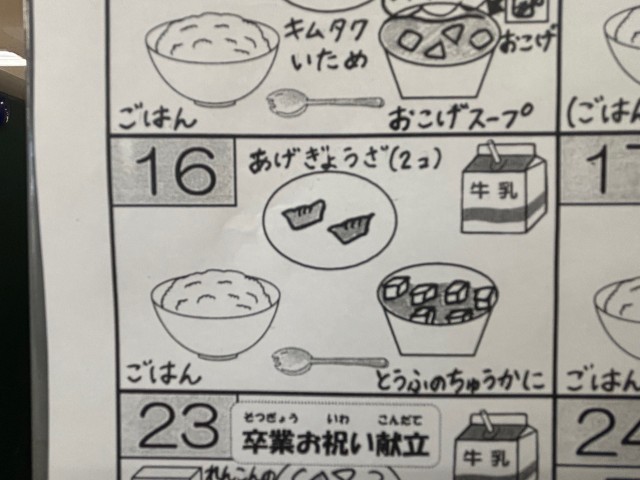 キムタク
いため
おこげ
ごはん
おこげスープ
(ごはん
16
あげぎょうざ(2コ)
牛乳
17
ごはん
とうふのちゅうかに
ごはん
23
そつぎょう いわ こんだて
卒業お祝い献立
牛乳
24
れんこんの